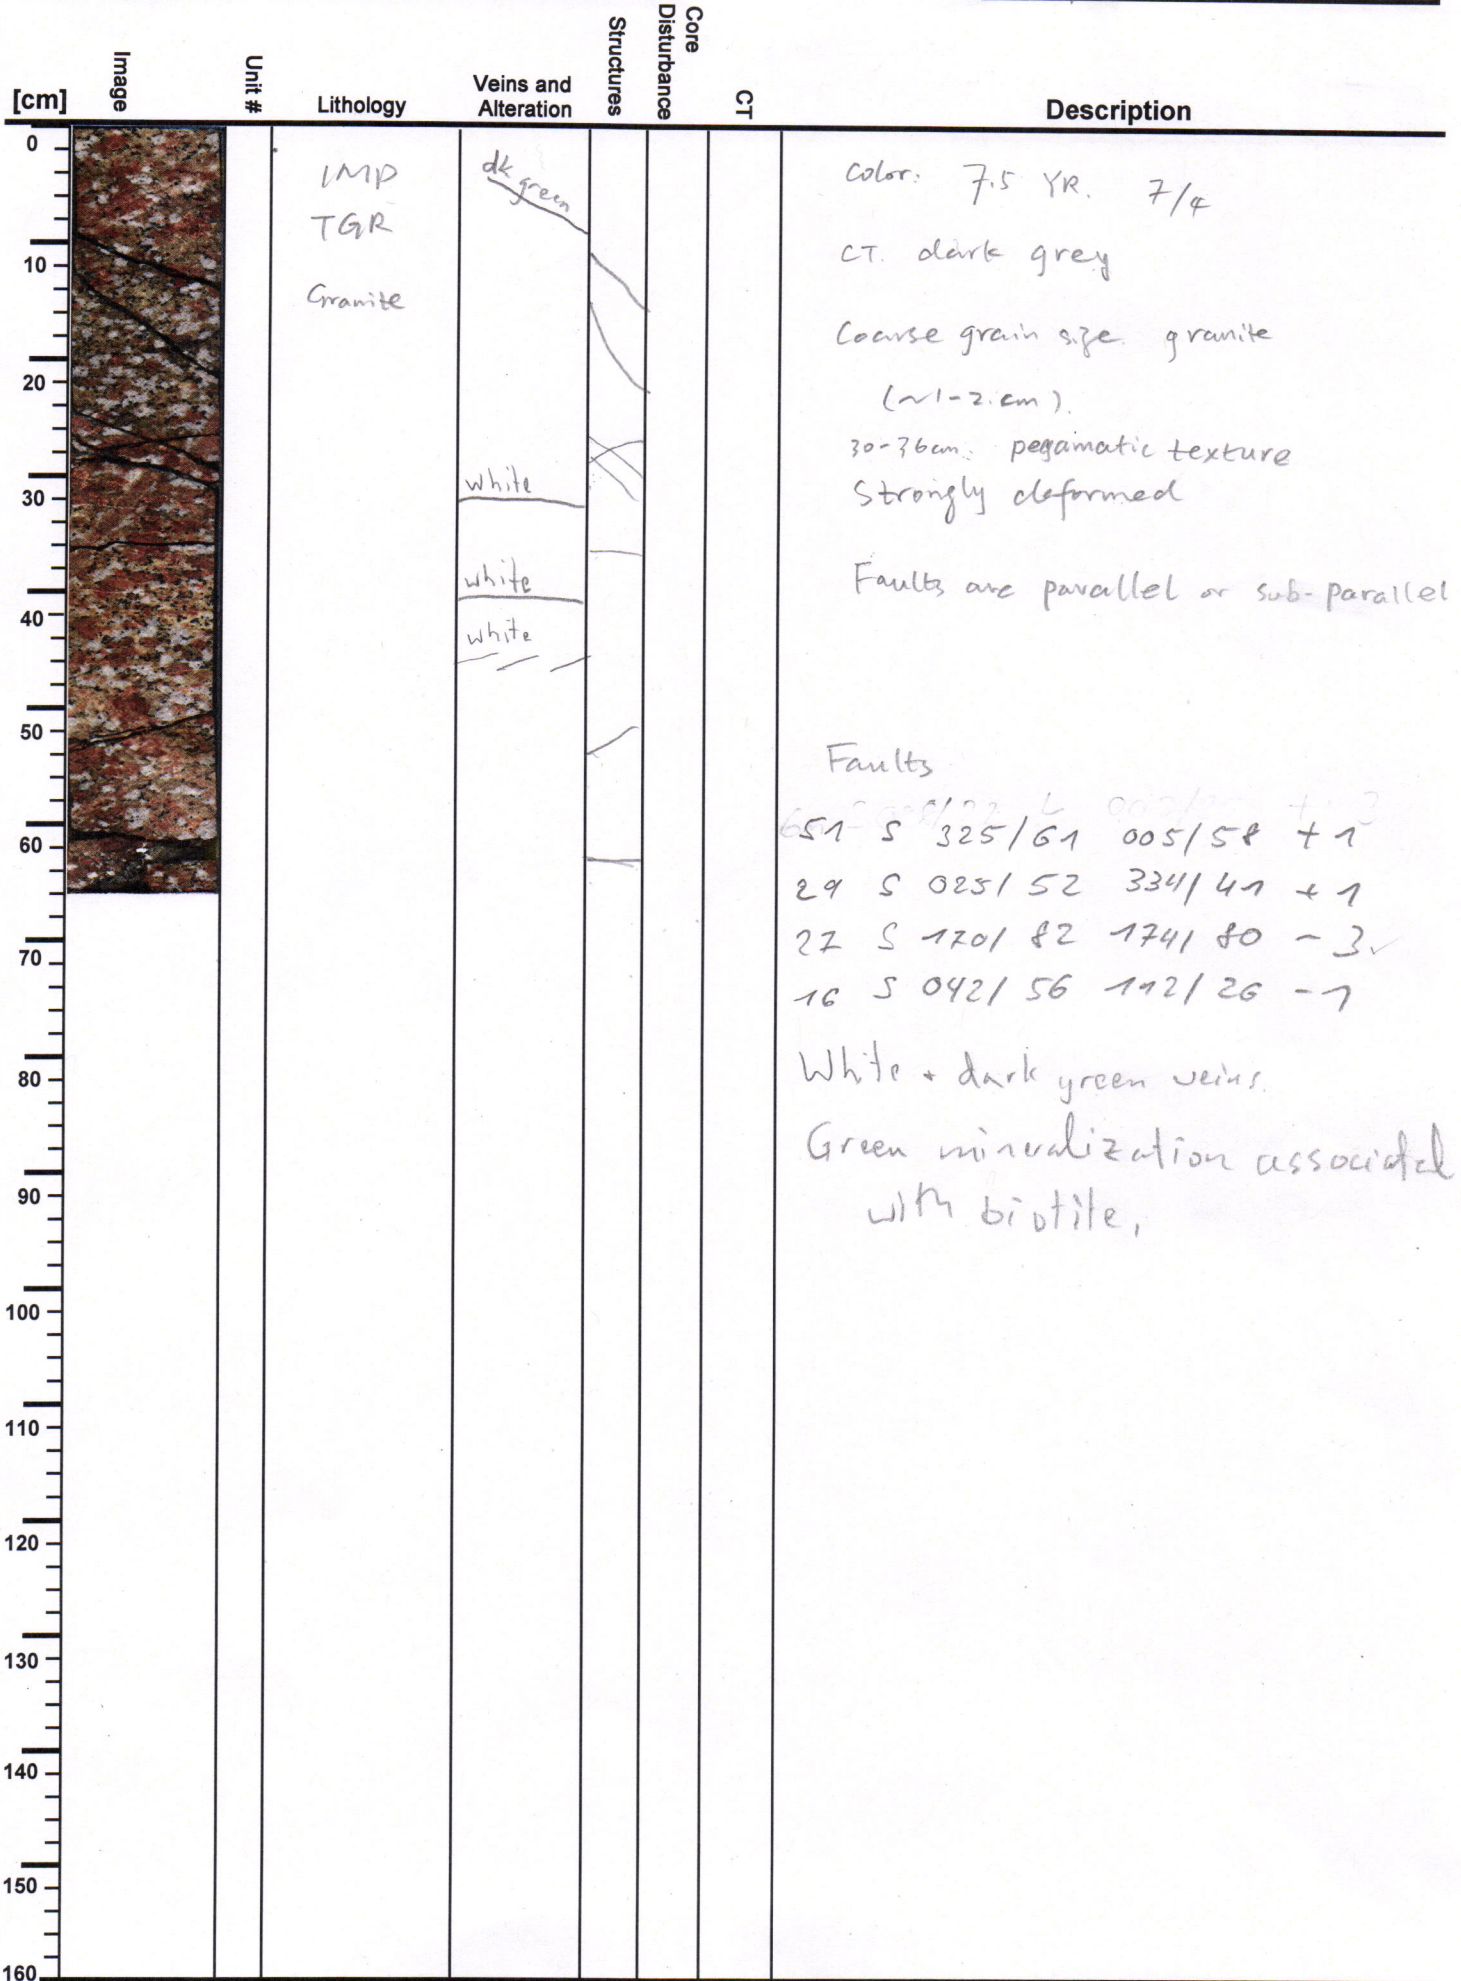 [cm]
Image
Unit #
Lithology
Veins and
Alteration
Structures
Core
Disturbance
CT
Description
0
10
20
30
40
50
60
70
80
90
100
110
120
130
140
150
160
IMP
TGR
Granite
dk green
white
white
white
Color: 7.5 YR. 7/4
CT. dark grey
Coarse grain size granite
(~1-2.cm).
30-36cm: pegamatic texture
Strongly deformed
Faults are parallel or sub-parallel
Faults
51 S 325/61 005/58 +1
29 S 025/52 334/41 +1
27 S 170/82 174/80 -3
16 S 042/56 112/26 -1
White + dark green veins.
Green mineralization associated
with biotite,